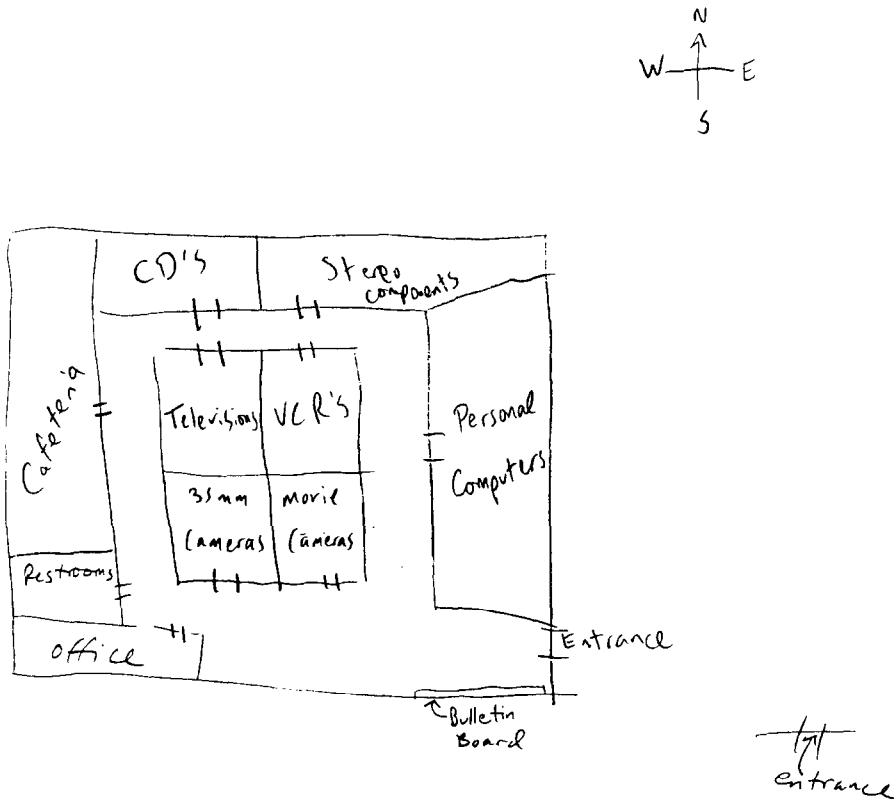 N
W E
S
CD's
Stereo
components
Cafeteria
Televisions
VCR's
Personal
Computers
35mm
Cameras
Movie
Cameras
Restrooms
Office
Entrance
Bulletin
Board
entrance